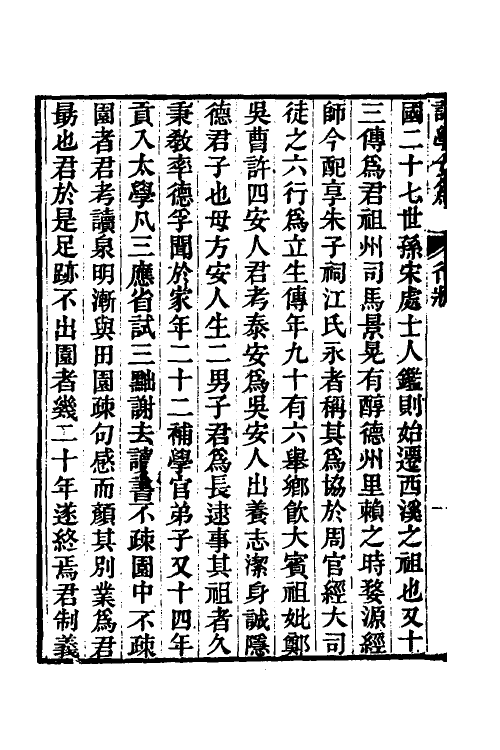 國二十七世孫宋處士人鑑則始遷西溪之祖也又十
三傳爲君祖州司馬景晃有醇德州里賴之時婺源經
師今配享朱子祠江氏永者稱其爲協於周官經大司
徒之六行爲立生傳年九十有六舉鄉飮大賓祖妣鄭
吳曹許四安人君考泰安爲吳安人出養志潔身誠隱
德君子也母方安人生二男子君爲長逮事其祖者久
秉敎率德孚聞於家年二十二補學官弟子又十四年
貢入太學凡三應省試三黜謝去讀書不疎園中不疎
園者君考讀泉明漸與田園疎句感而顏其別業爲君
勗也君於是足跡不出園者幾二十年遂終焉君制義